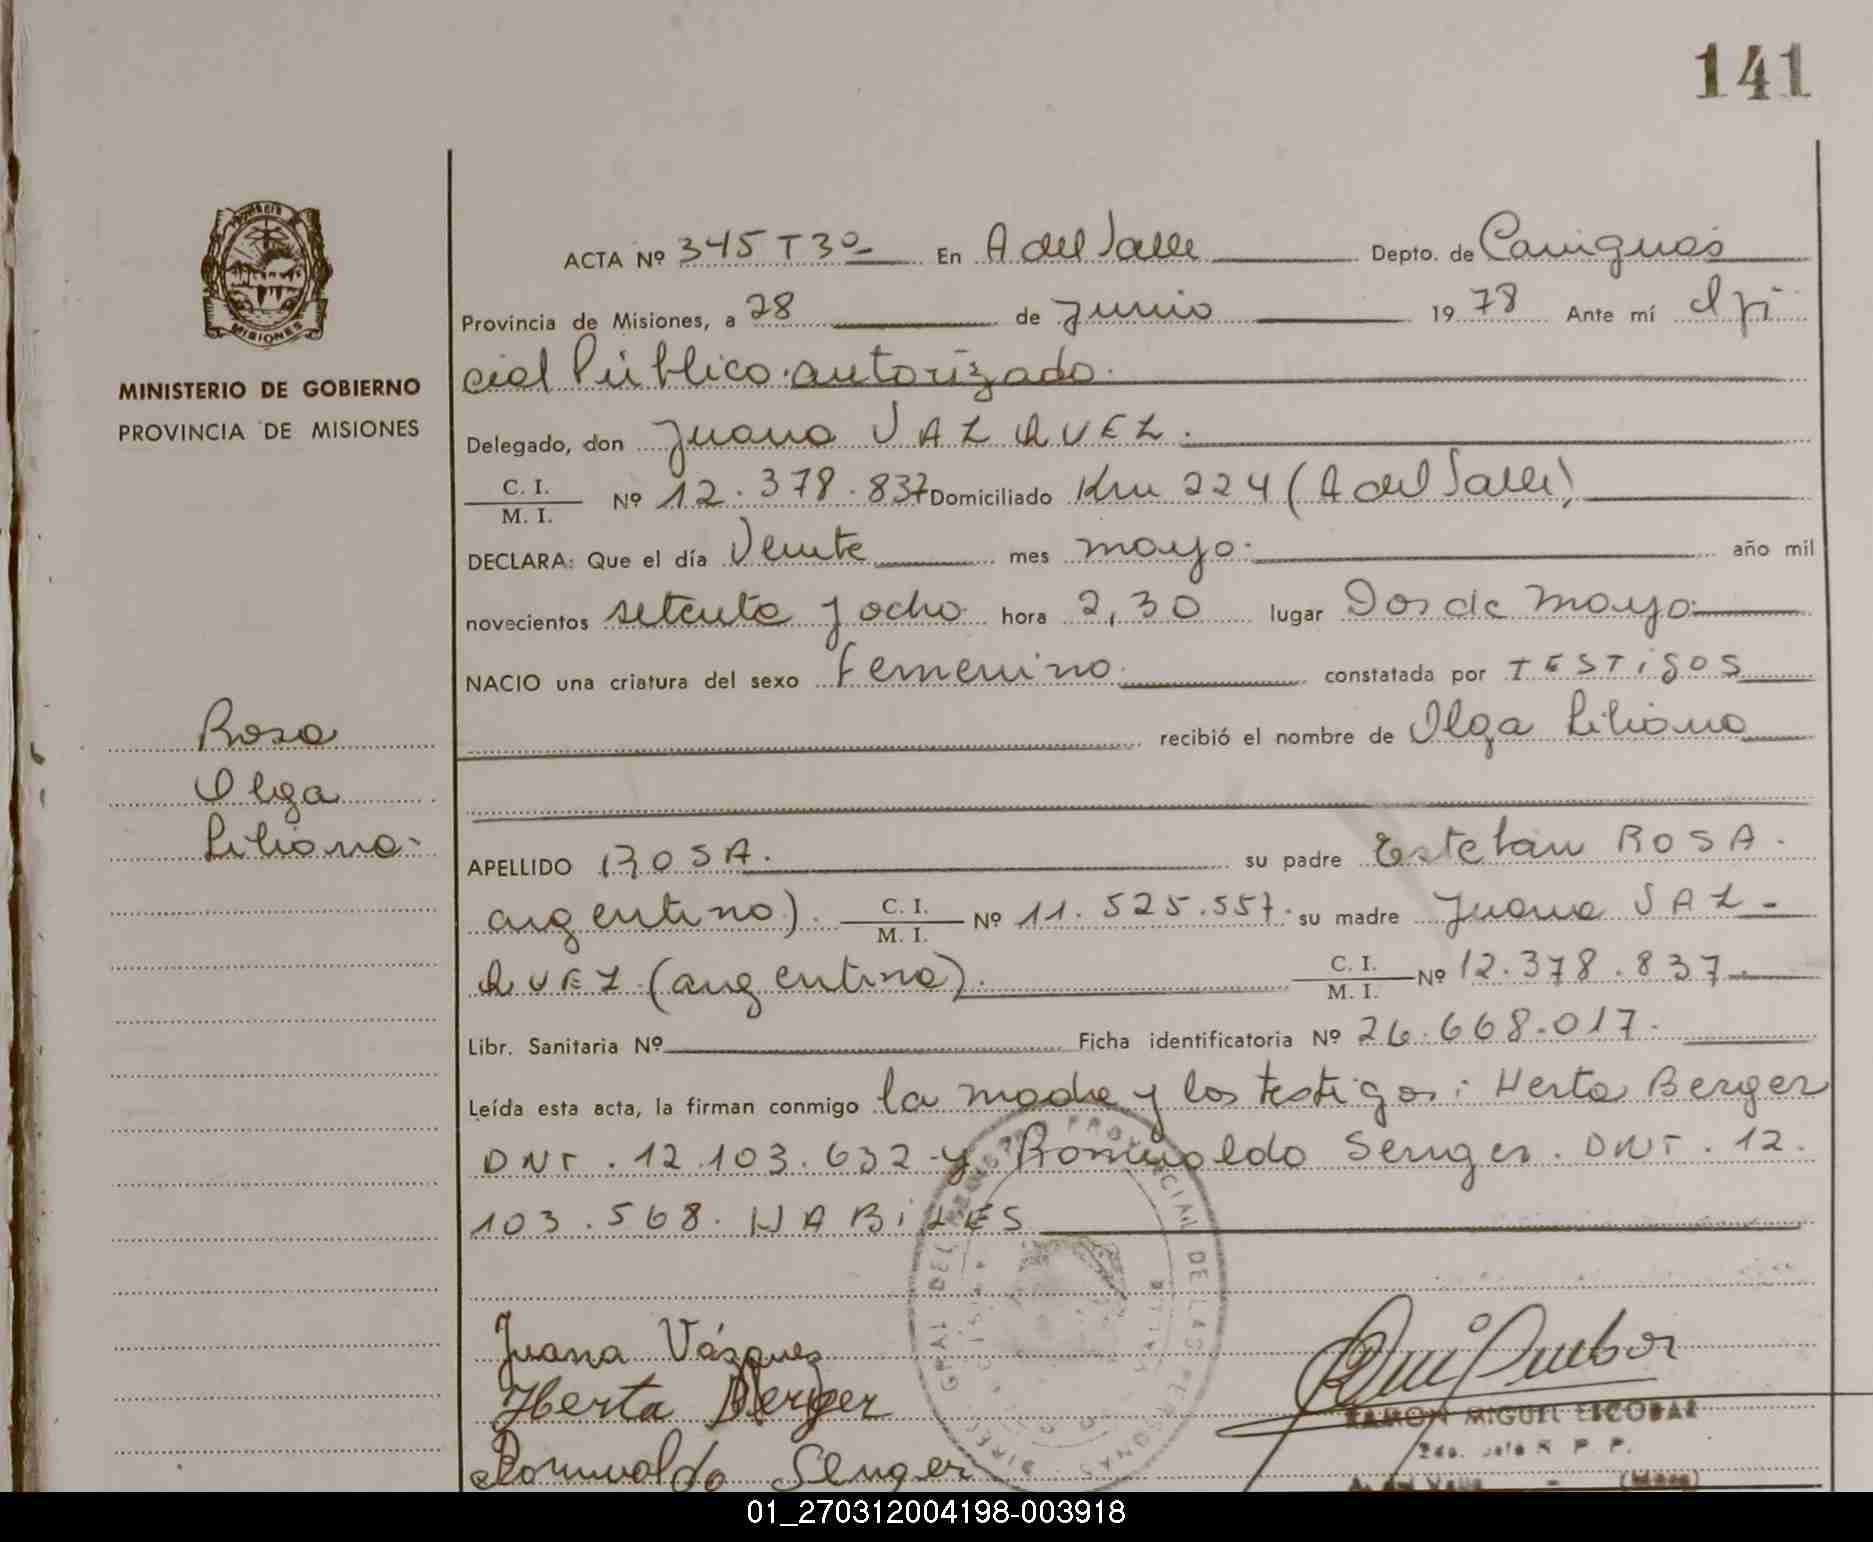 141
ACTA Nº 345 T3º En A del Valle Depto. de Cainguás
Provincia de Misiones, a 28 de Junio 1978 Ante mí Ofi
cial Público autorizado.
Delegado, don Juana VAZQUEZ.
C. I.
M. I.
Nº 12.378.837 Domiciliado Km 224 (A del Valle)
DECLARA: Que el día Veinte mes mayo. año mil
novecientos setenta y ocho hora 2,30 lugar Dos de mayo
NACIO una criatura del sexo femenino constatada por TESTigos
recibió el nombre de Olga Liliana
APELLIDO ROSA. su padre Esteban ROSA.
argentino). C. I.
M. I.
Nº 11.525.557. su madre Juana VAZ-
QUEZ (argentina). C. I.
M. I.
Nº 12.378.837
Libr. Sanitaria Nº Ficha identificatoria Nº 26.668.017.
Leída esta acta, la firman conmigo la madre y los testigos: Herta Berger
DNI. 12.103.632 y Romualdo Senger. DNI. 12.
103.568. HABiLES
Juana Vázquez
Herta Berger
Romualdo Senger
RAMON MIGUEL ESCOBAR
MISIONES
MINISTERIO DE GOBIERNO
PROVINCIA DE MISIONES
Rosa
Olga
Liliana-
01_270312004198-003918